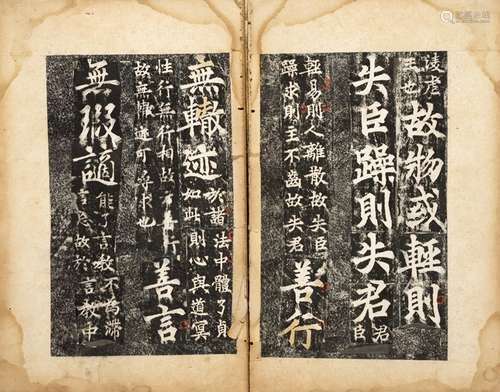 淩虐
主也故物或輕則
失臣躁則失君君
臣
輕易則人離散故失臣
躁求則主不齒故失君善行
無轍迹於諸法中體了真
如此則心與道冥
性行無行相故善行
故無轍迹可尋求也善言
無瑕謫能了言教不為滯
言故於言教中